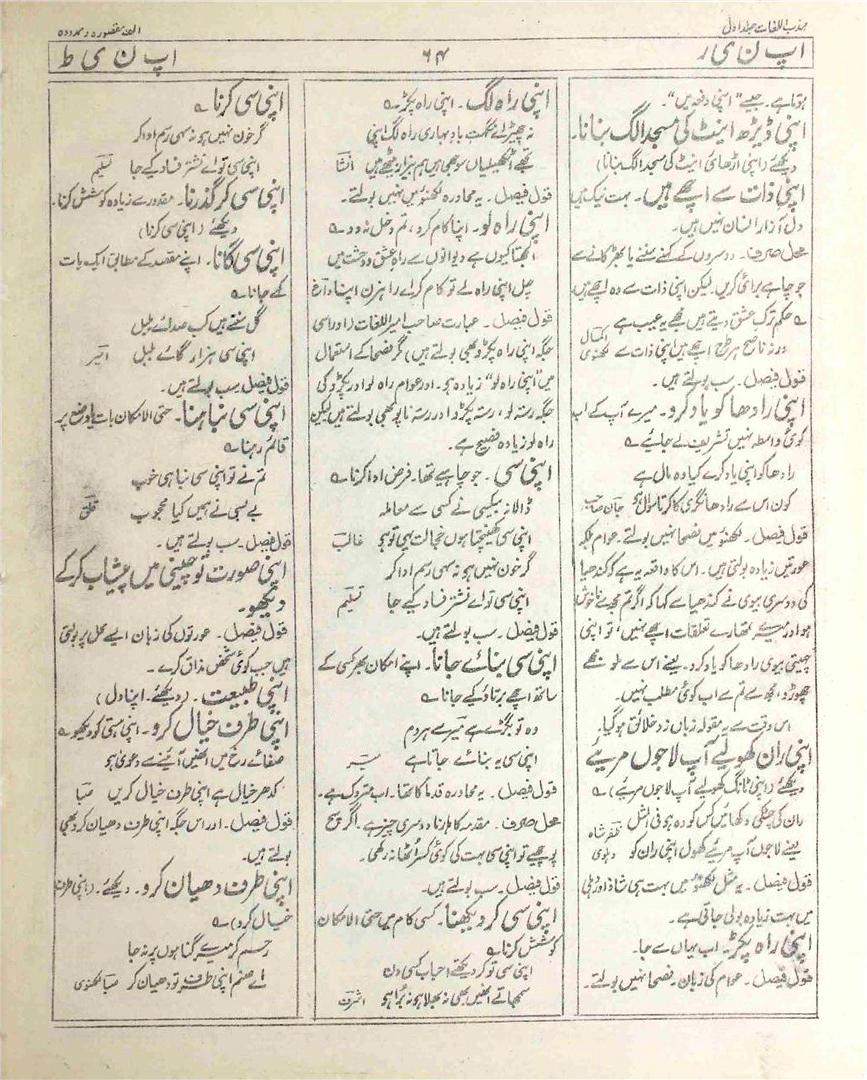 مہذب اللغات جلد اول
الف مقصورہ و ممدودہ
اپ ن ی ر
۶۴
اپ ن ی ط
ہوتا ہے۔ جیسے "اپنی دفعہ میں"۔
اپنی ڈیڑھ اینٹ کی مسجد الگ بنانا۔
دیکھئے (اپنی اڑھائی اینٹ کی مسجد الگ بنانا)
اپنی ذات سے اچھے ہیں۔ بہت نیک ہیں
دل آزار انسان نہیں ہیں۔
محل صرف۔ دوسروں کے کہنے سننے یا بھڑکانے سے
جو چاہے برائی کریں۔ لیکن اپنی ذات سے وہ اچھے ہیں
؎ حکم ترک عشق دیتے ہیں مجھے یہ عیب ہے
ورنہ ناصح ہر طرح اچھے ہیں اپنی ذات سے لکھنوی
قول فیصل۔ سب بولتے ہیں۔
اپنی رادھا کو یاد کرو۔ میرے آپ کے اب
کوئی واسطہ نہیں تشریف لے جایئے ؎
رادھا کو اپنی یاد کرے کیا وہ مال ہے
کون اس سے رادھا نگری کا کرتا سوال ہو جان صاحب
قول فیصل۔ لکھنؤ میں فصحا نہیں بولتے۔ عوام بلکہ
عورتیں زیادہ بولتی ہیں۔ اس کا واقعہ یہ ہے کہ کندھیا
کی دوسری بیوی نے کندھیا سے کہا کہ اگر تم مجھ سے ناخوش
ہو اور میرے تمہارے تعلقات اچھے نہیں تو اپنی
چہیتی بیوی رادھا کو یاد کرو۔ یعنے اس سے ملو مجھے
چھوڑو مجھ سے تم سے اب کوئی مطلب نہیں۔
اس وقت سے یہ مقولہ زباں زد خلائق ہو گیا۔
اپنی ران کھولیے آپ لاجوں مریئے
دیکھئے (اپنی ٹانگ کھولیے آپ لاجوں مریئے) ؎
ران کی چٹکی دکھائیں کس کو وہ ہوئی المثل ظفر شاہ
یعنے لاجوں آپ مریئے کھول اپنی ران کو دہلوی
قول فیصل۔ یہ مثل لکھنؤ میں بہت ہی شاذ اور دہلی
میں بہت زیادہ بولی جاتی ہے۔
اپنی راہ پکڑ۔ اب یہاں سے جا۔
قول فیصل۔ عوام کی زبان۔ فصحا نہیں بولتے۔
اپنی راہ لگ۔ اپنی راہ پکڑ ؎
نہ چھیڑ اے نکہت باد بہاری راہ لگ اپنی
تجھے اٹکھیلیاں سوجھی ہیں ہم بیزار بیٹھے ہیں انشا
قول فیصل۔ یہ محاورہ لکھنؤ میں نہیں بولتے۔
اپنی راہ لو۔ اپنا کام کرو، تم دخل نہ دو ؎
الجھتا کیوں ہے دیوانوں سے راہ عشق و وحشت میں
چل اپنی راہ لے تو کام کر اے راہزن اپنا داغ
قول فیصل۔ عبارت صاحب امیر اللغات (اور اسی
جگہ اپنی راہ پکڑو بھی بولتے ہیں) مگر فصحا کے استعمال
میں "اپنی راہ لو" زیادہ ہو۔ اور عوام راہ لو اور پکڑو کی
جگہ رستہ لو، رستہ پکڑو اور رستہ ناپو بھی بولتے ہیں لیکن
راہ لو زیادہ فصیح ہے۔
اپنی سی۔ جو چاہیے تھا۔ فرض ادا کرنا ؎
ڈالا نہ بیکسی نے کسی سے معاملہ
اپنی سی کھینچتا ہوں خجالت ہی تو ہو غالب
گر خون نہیں ہو نہ سہی رسم ادا کر
اپنی سی تو اے نشتر فصاد کیے جا تسلیم
قول فیصل۔ سب بولتے ہیں۔
اپنی سی بنائے جانا۔ اپنے امکان بھر کسی کے
ساتھ اچھے برتاؤ کیے جانا ؎
وہ تو بگڑے ہے میر سے ہر دم
اپنی سی یہ بنائے جاتا ہے میر
قول فیصل۔ یہ محاورہ قدما کا تھا۔ اب متروک ہے۔
محل صرف۔ مقدمہ کا ہارنا دوسری چیز ہے۔ اگر سچ
پوچھیے تو اپنی سی بہت کی کوئی کسر اٹھا نہ رکھی۔
قول فیصل۔ سب بولتے ہیں۔
اپنی سی کر دیکھنا۔ کسی کام میں حتی الامکان
کوشش کرنا ؎
اپنی سی تو کر دیکھتے احباب کسی دن
سمجھاتے انھیں بھی نہ بھلا ہو نہ برا ہو اشرف
اپنی سی کرنا ؎
گر خون نہیں ہو نہ سہی رسم ادا کر
اپنی سی تو اے نشتر فصاد کیے جا تسلیم
اپنی سی کر گذرنا۔ مقدور سے زیادہ کوشش کرنا۔
دیکھئے (اپنی سی کرنا)
اپنی سی گانا۔ اپنے مقصد کے مطابق ایک بات
کہے جانا ؎
گل سنتے ہیں کب صدائے بلبل
اپنی سی ہزار گائے بلبل امیر
قول فیصل۔ سب بولتے ہیں۔
اپنی سی نباہنا۔ حتی الامکان بات یا وضع پر
قائم رہنا ؎
تم نے تو اپنی سی نباہی خوب
بے بسی نے ہمیں کیا محجوب قلق
قول فیصل۔ سب بولتے ہیں۔
اپنی صورت تو چینی میں پیشاب کر کے
دیکھو۔
قول فیصل۔ عورتوں کی زبان ایسے محل پر بولتی
ہیں جب کوئی شخص مذاق کرے۔
اپنی طبیعت۔ (دیکھئے۔ اپنا دل)
اپنی طرف خیال کرو۔ اپنی ہستی کو دیکھو ؎
صفائے رخ میں انھیں آئینے سے دعویٰ ہو
کدھر خیال ہے اپنی طرف خیال کریں صبا
قول فیصل۔ اور اس جگہ اپنی طرف دھیان کرو بھی
بولتے ہیں۔
اپنی طرف دھیان کرو۔ دیکھئے۔ (اپنی طرف
خیال کرو) ؎
رحم کر میرے گناہوں پر نہ جا
اے صنم اپنی طرف تو دھیان کر صبا لکھنوی